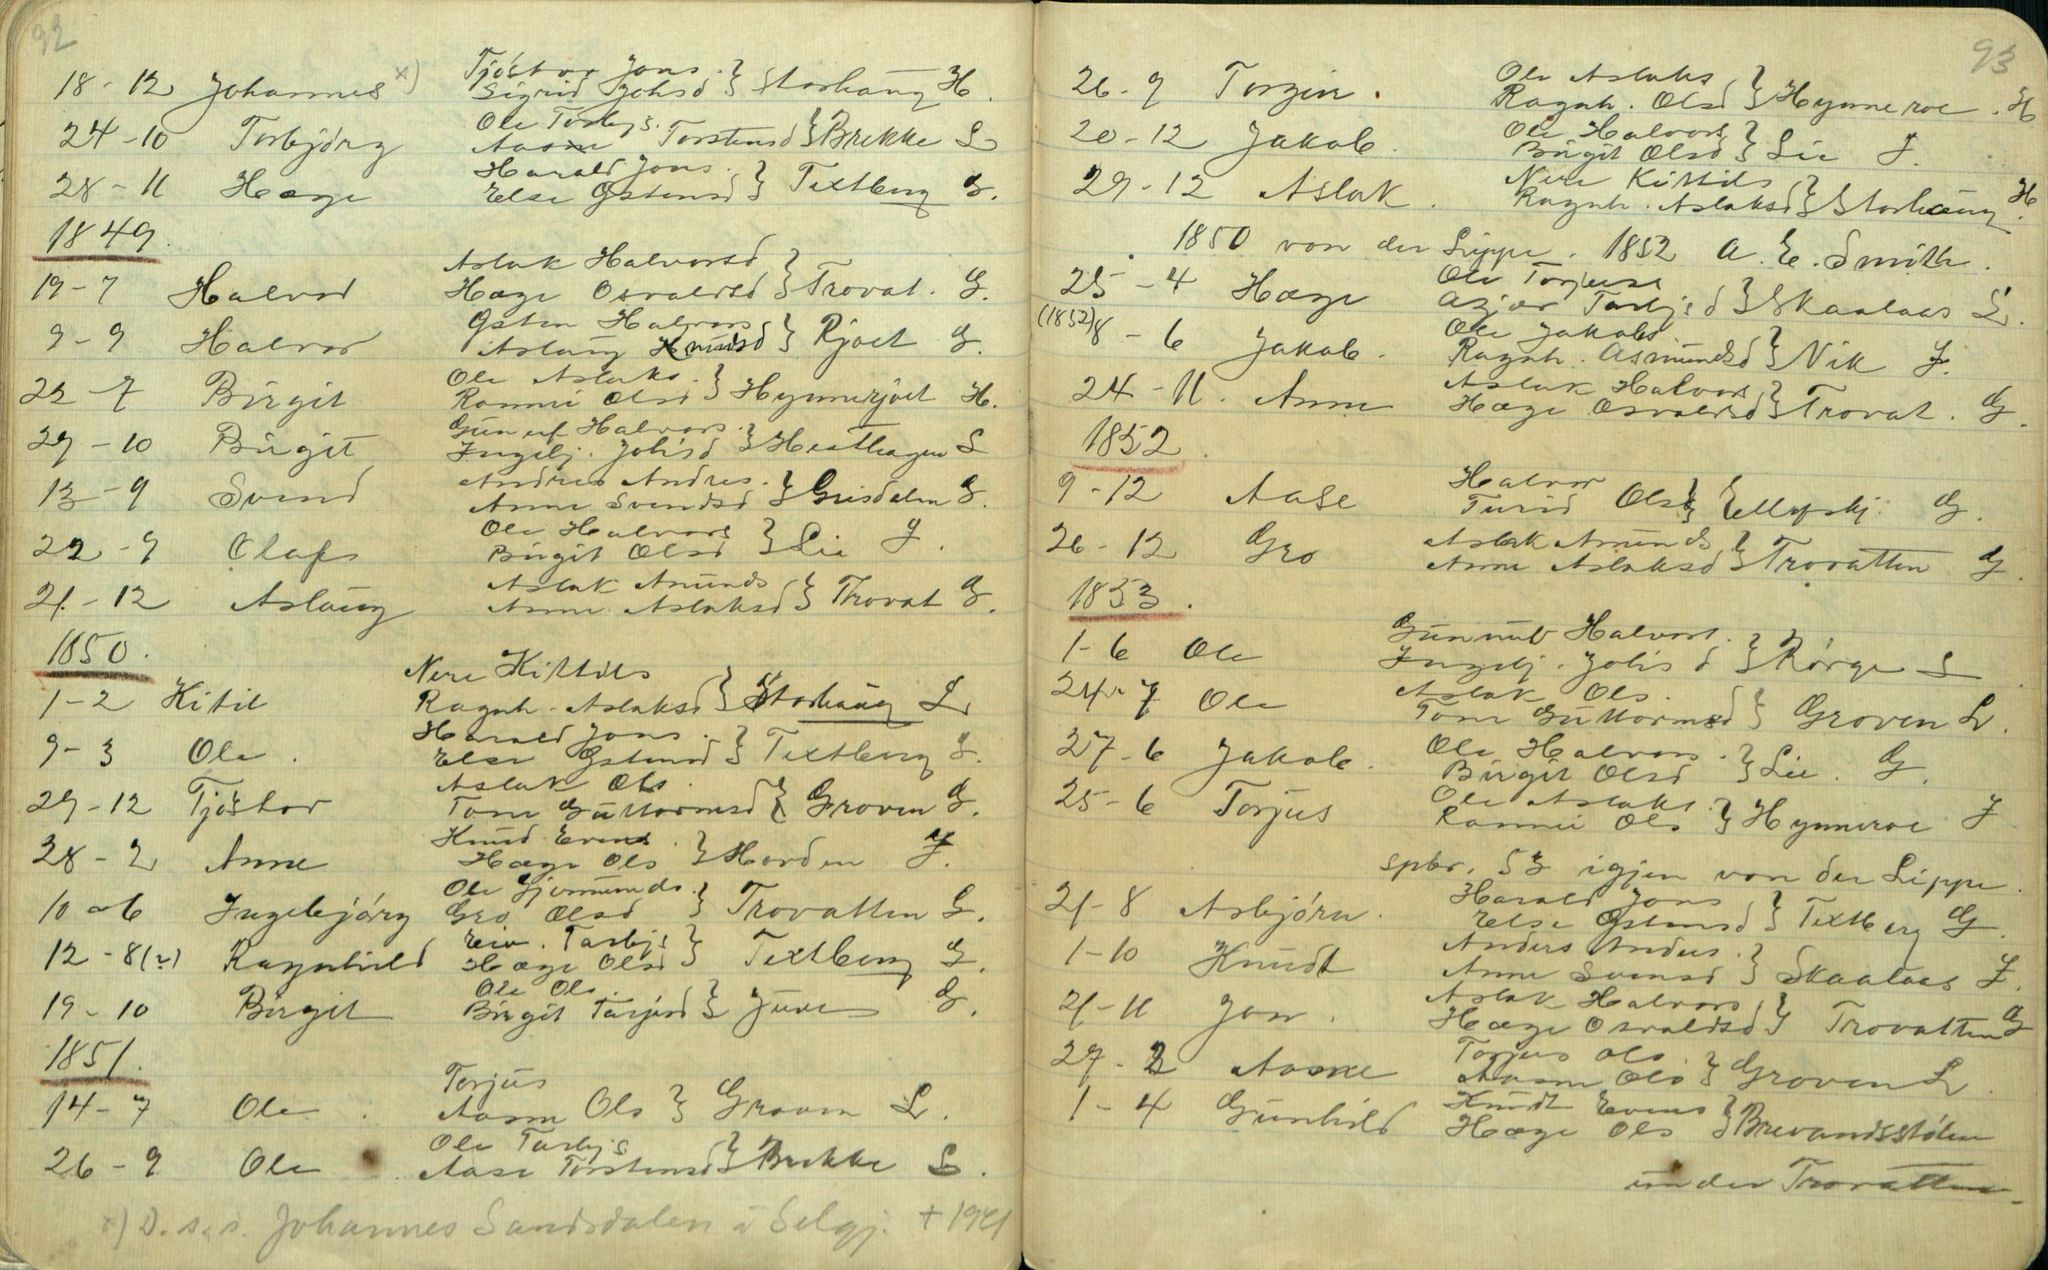 92
18-12 Johannes x) Tjöstov Jons. } Storhaug H.
Sigrid Johsd
24-10 Torbjörg Ole Torbjs. } Brekke L
Aasne Torstensd
28-11 Hæge Harald Jons. } Textberg G.
Else Östensd
1849.
19-7 Halvor Aslak Halvorsd } Trovat. G.
Hæge Osvaldsd
9-9 Halvor Östen Halvors } Rjoet G.
Aslaug Knudsd
22-7 Birgit Ole Aslaks. } Hynnerjoet H.
Ronnei Olsd
29-10 Birgit Gunulf Halvors. } Hesthagen L
Ingebj. Johsd
13-9 Svend Andres Andres. } Grisdalen G.
Anne Svendsd
22-9 Olaf Ole Halvors } Lie J.
Birgit Olsd
21-12 Aslaug Aslak Amunds } Trovat G.
Anne Aslaksd
1850.
1-2 Kitil Nere Kittils } Storhaug L
Ragnh. Aslaksd
9-3 Ole. Harald Jons. } Textberg G.
Else Östensd
29-12 Tjöstov Aslak Ols. } Groven G.
Tone Guttormsd
28-2 Anne Knud Evens. } Horden J.
Hæge Ols
10-6 Ingebjörg Ole Gjermunds. } Trovatten G.
Gro Olsd
12-8(2) Ragnhild Eiv. Torbjs } Textberg G.
Hæge Olsd
19-10 Birgit Ole Ols. } Juve G.
Birgit Torjusd
1851.
14-7 Ole. Torjus } Groven L.
Aasne Ols
26-9 Ole Ole Torbjs } Brekke L.
Aase Torstensd
x) D. s. s. Johannes Sandsdalen i Selgj. + 1941
93
26-9 Torgin. Ole Aslaks } Hynneroe. H
Ragnh. Olsd
20-12 Jakob. Ole Halvors } Lie J.
Birgit Olsd
29-12 Aslak. Nere Kittils } Storhaug H.
Ragnh. Aslaksd
1850 von der Lippe. 1852 A. E. Smith.
25-4 Hæge Ole Torjuss } Skaalaas L.
Asjer Torbjsd
(1852) 8-6 Jakob. Ole Jakobs. } Nik J.
Ragnh. Asmundsd
24-11. Anne Aslak Halvors } Trovat. G.
Hæge Osvaldsd
1852.
9-12 Aase Halvor } Ellefskj. G.
Turid Ols
26-12 Gro Aslak Amunds } Trovatten G.
Anne Aslaksd
1853.
1-6 Ole Gunnulv Halvors. } Rörge L
Ingebj. Johsd
24-7 Ole Aslak Ols. } Groven L.
Tone Guttormsd
27-6 Jakob. Ole Halvors. } Lie. G.
Birgit Olsd
25-6 Torjus Ole Aslaks. } Hynneroe J
Ronnei Ols
spbr. 53 igjen von der Lippe.
21-8 Asbjörn. Harald Jons } Textberg G.
Else Östensd
1-10 Knudt Anders Anders. } Skaalaas J.
Anne Svensd
21-11 Jon. Aslak Halvors } Trovatten G
Hæge Osvaldsd
27-2 Aasne Torjus Ols. } Groven L.
Aasne Ols
1-4 Gunhild Knudt Evens } Brevandsstölen
Hæge Ols
under Trovatten